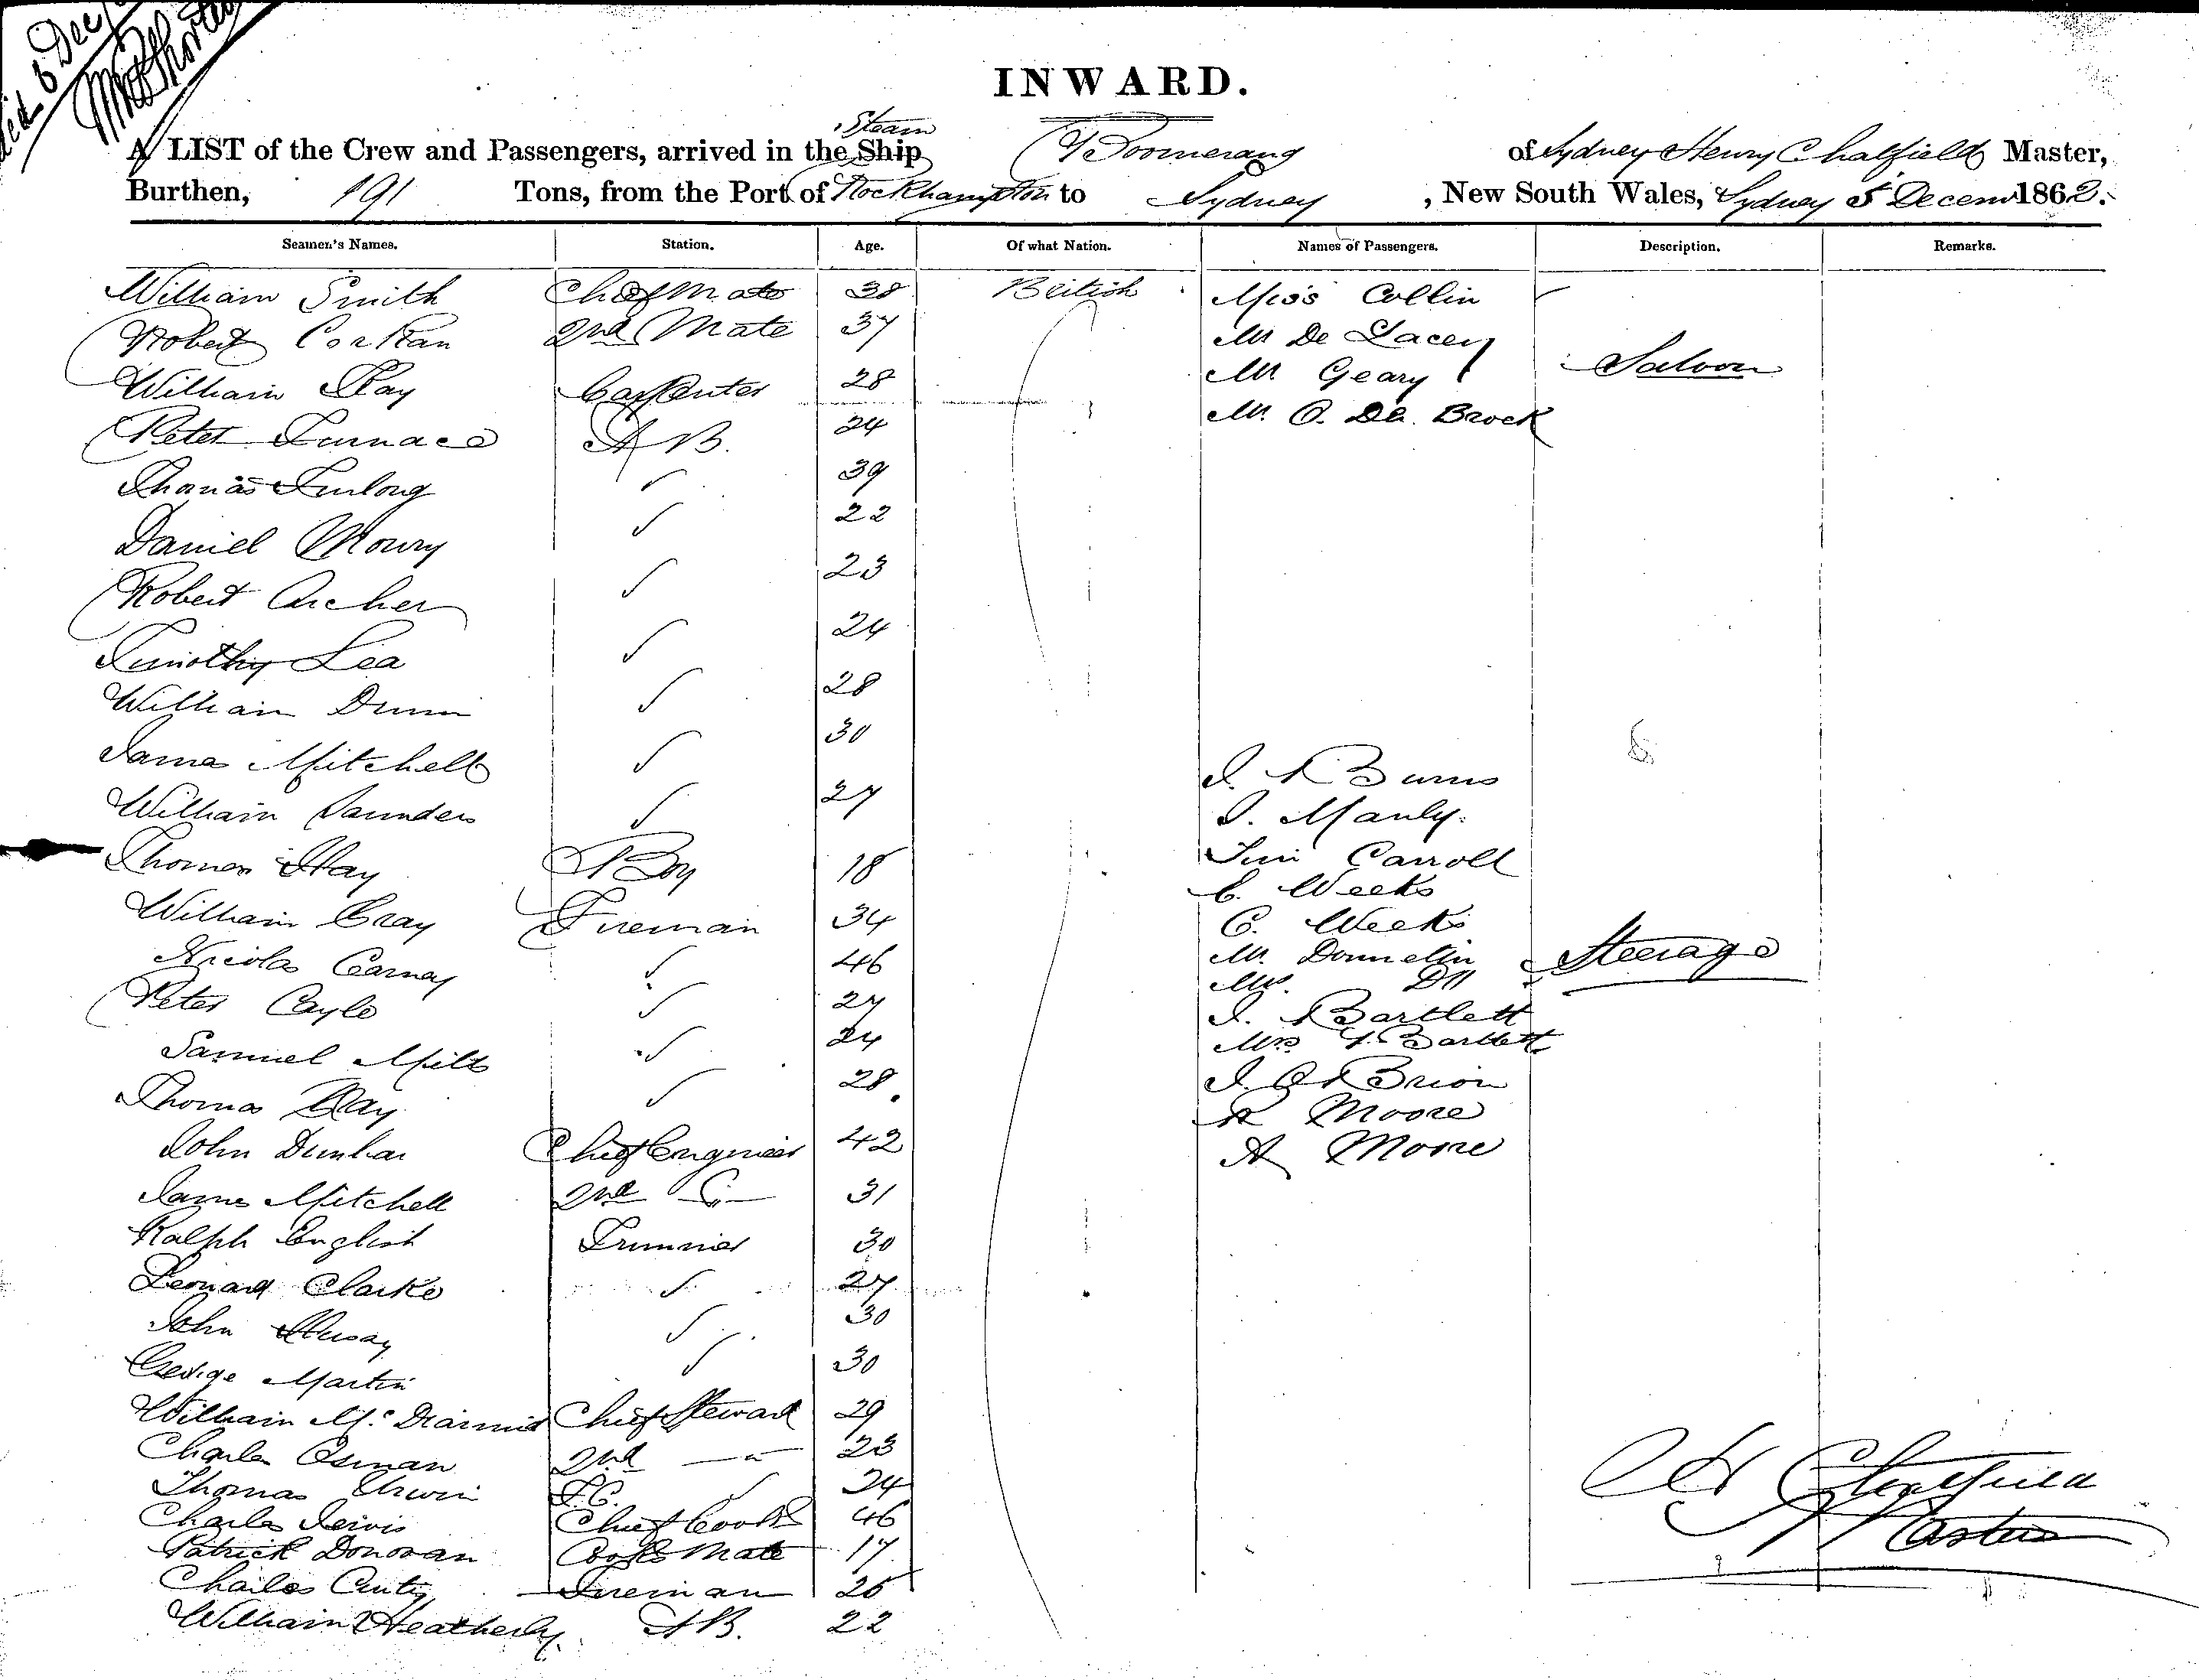 6 Dec
INWARD.
Steam
A LIST of the Crew and Passengers, arrived in the Ship Boomerang of Sydney Henry Chatfield Master,
Burthen, 191 Tons, from the Port of Rockhampton to Sydney , New South Wales, Sydney 5 Decem 1862.
Seamen's Names. Station. Age. Of what Nation. Names of Passengers. Description. Remarks.
William Smith Chief Mate 38 British Miss Collin
Robert Corkan 2nd Mate 37 Mr De Lacey
William Ray Carpenter 28 Mr Geary Saloon
Peter Furnace AB. 24 Mr. O. De. Brock
Thomas Furlong ✓ 39
Daniel Mowry ✓ 22
Robert Archer ✓ 23
Timothy Lea ✓ 24
William Dunn ✓ 28
James Mitchell ✓ 30
William Saunders ✓ 27
J. Burns
J. Manly.
Thomas Hay Boy 18 Tim Carroll
C. Weeks
William Gray Fireman 34 C. Weeks
Nicolas Carney ✓ 46 Mr. Donnelin Steerage
Mrs. Do
Peter Cayle ✓ 27 J. Bartlett
Samuel Mills ✓ 24 Mrs J. Bartlett
Thomas Ray ✓ 28 J. O Brion
R Moore
John Dunbar Chief Engineer 42 A Moore
James Mitchell 2nd — 31
Ralph English Trimmer 30
Leonard Clarke ✓ 27
John ✓ 30
George Martin ✓ 30
William Mc Diarmid Chief Steward 29
Charles Osman 2nd — 23
Thomas Irwin F.C. ✓ 24
Charles Jervis Chief Cook 46
Patrick Donovan Cooks Mate 17
Charles Fireman 26
William Heatherly. AB. 22
S H Chatfield
Master